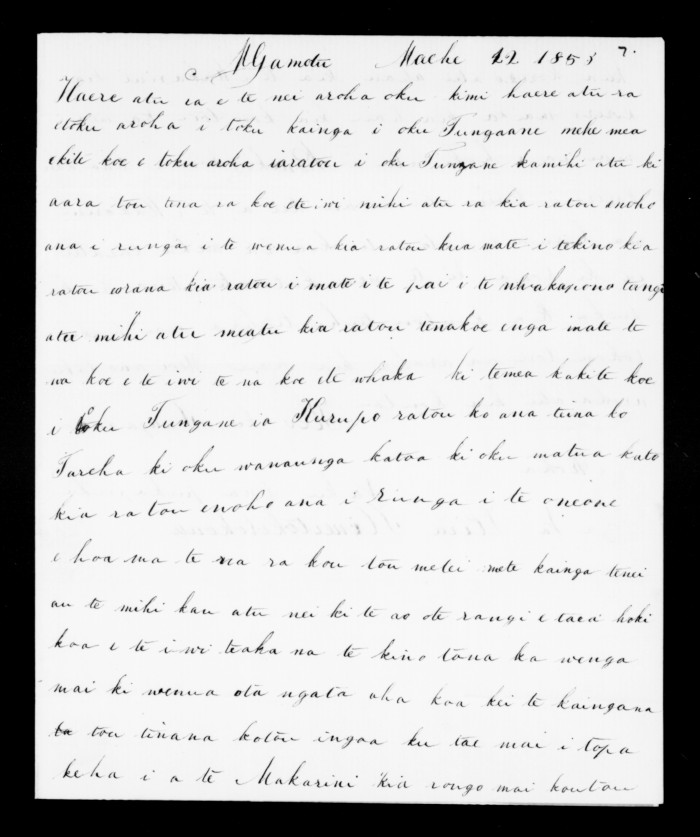 Ngamotu Maehe 22 1853 7.
Haere atu ra e te nei aroha oku kimi haere atu ra
etoku aroha i toku kainga i oku Tungaane mehe mea
ekite koe e toku aroha iaratou i oku Tungane kamihi atu ki
aara tou tena ra koe ete iwi mihi atu ra kia ratou enoho
ana i runga i te wenua kia ratou kua mate i tekino kia
ratou orana kia ratou i mate i te pai i te whakapono tangi
atu mihi atu meatu kia ratou tenakoe enga mate te
na koe e te iwi te na koe ete whaka ki temea kakite koe
i oku Tungane ia Kurupo ratou ko ana teina ko
Tareha ki oku wanaunga katoa ki oku matua kato
kia ratou enoho ana i runga i te oneone
e hoa ma te na ra kou tou metei mete kainga tenei
au te mihi kau atu nei ki te ao ote rangi e taea hoki
koa e te iwi teaka na te kino tana ka wenga
mai ki wenua ota ngata aha koa kei te kaingana
ta tou tinana kotou ingoa ku tae mai i topa
keha i a te Makarini kia rongo mai koutou